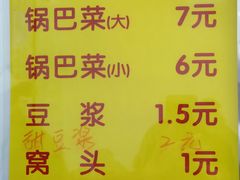 锅巴菜(大) 7元
锅巴菜(小) 6元
豆浆 1.5元
甜豆浆 2元
窝头 1元